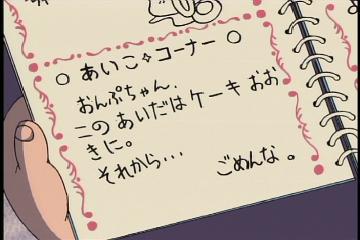 ○ あいこ✧コーナー ○
おんぷちゃん、
このあいだはケーキ おお
きに。
それから・・・ ごめんな。